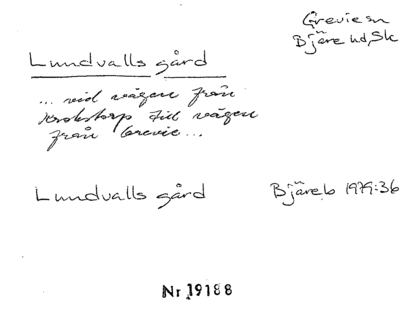 Grevie sn
Bjäre hd, Sk
Lundvalls gård
... vid vägen från
till vägen
från Grevie ...
Lundvalls gård
Bjäreb 1979:36
Nr 19188